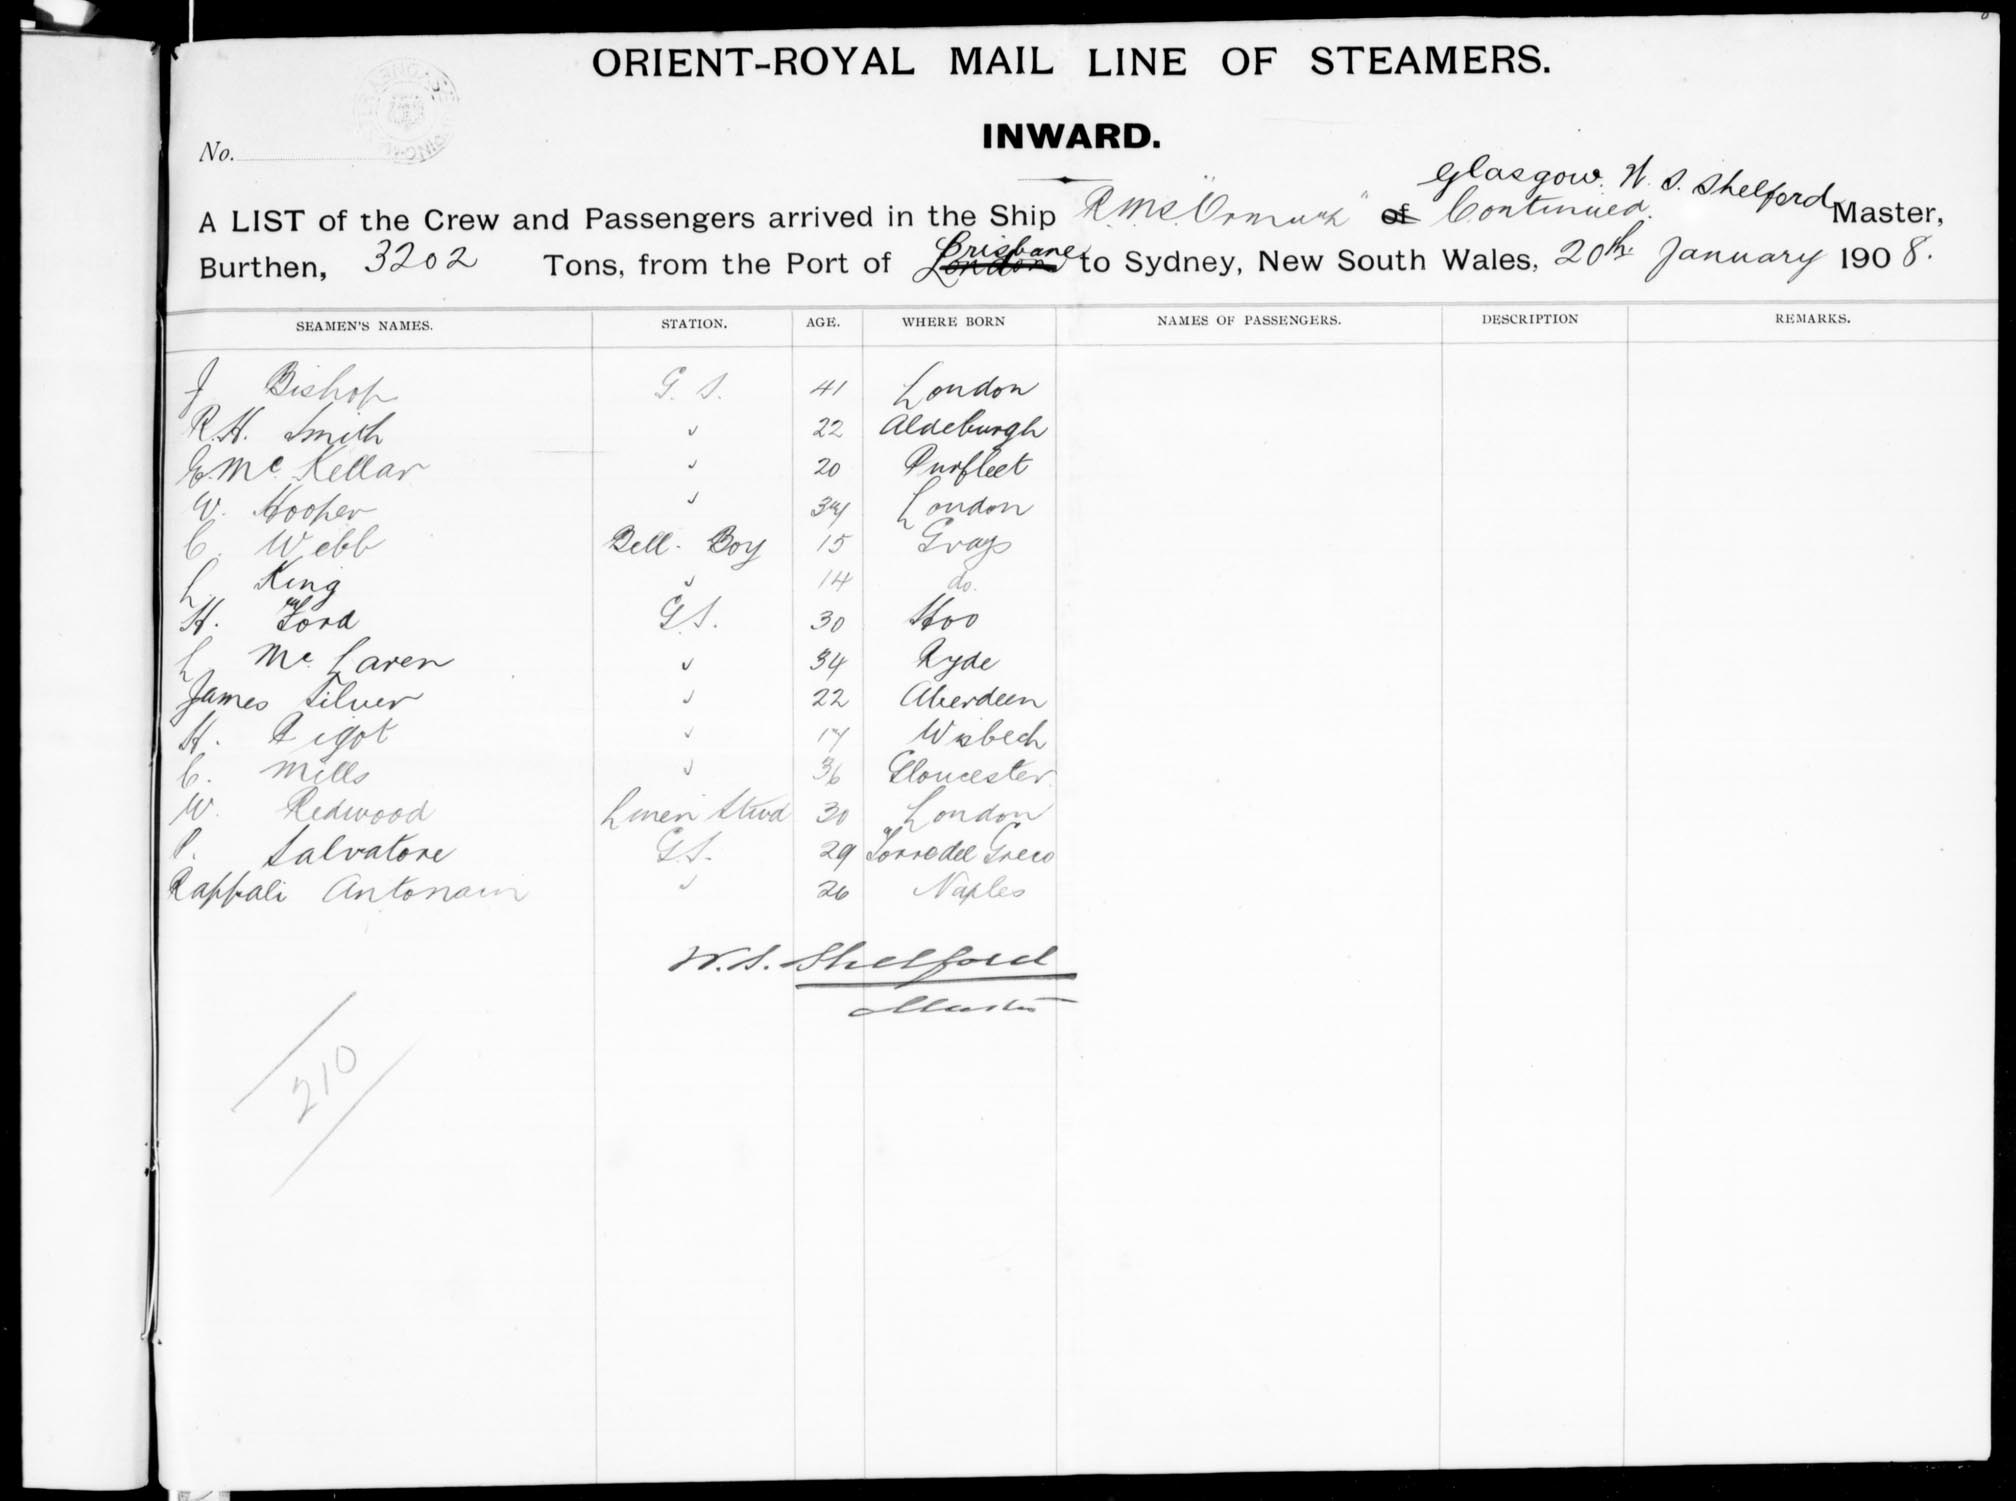 ORIENT-ROYAL MAIL LINE OF STEAMERS.
INWARD.
No.
Glasgow. W. S. Shelford
A LIST of the Crew and Passengers arrived in the Ship R.M.S. "Ormuz" of Continued. Master,
Brisbane
Burthen, 3202 Tons, from the Port of London to Sydney, New South Wales, 20th January 1908.
SEAMEN'S NAMES. STATION. AGE. WHERE BORN NAMES OF PASSENGERS. DESCRIPTION REMARKS.
J Bishop G. S. 41 London
R. H. Smith " 22 Aldeburgh
E. Mc Kellar " 20 Purfleet
W. Hooper " 34 London
C. Webb Bell-Boy 15 Grays
L King " 14 do.
H. Ford G.S. 30 Hoo
L Mc Laren " 34 Ryde
James Silver " 22 Aberdeen
H. Pigot " 17 Wisbech
C. Mills " 36 Gloucester
W. Redwood Linen Stwd 30 London
Salvatore G.S. 29 Torre del Greco
Antonain " 26 Naples
W. S. Shelford
Master
210